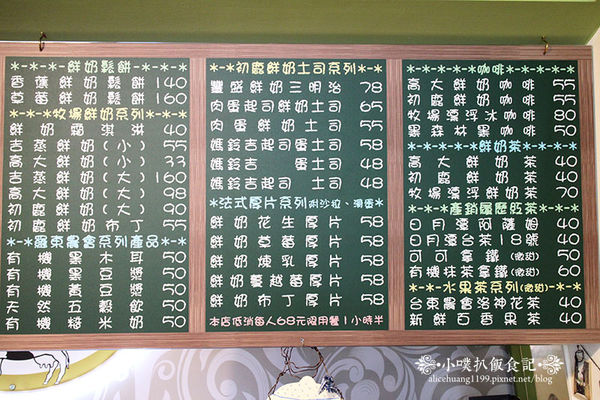 *-*-*-*-鮮奶鬆餅*-*-*-*
香蕉鮮奶鬆餅140
草莓鮮奶鬆餅160
*-*-牧場鮮奶系列*-*-*
鮮奶霜淇淋40
吉蒸鮮奶(小)55
高大鮮奶(小)33
吉蒸鮮奶(大)160
高大鮮奶(大)98
初鹿鮮奶(大)90
初鹿鮮奶布丁55
*-*-羅東農會系列產品*-*
有機黑木耳50
有機黑豆漿50
有機黃豆漿50
天然五穀飲50
有機糙米奶50
*-*初鹿鮮奶土司系列*-*
豐盛鮮奶三明治78
肉蛋起司鮮奶土司65
肉蛋鮮奶土司55
媽鈴吉起司蛋土司58
媽鈴吉 蛋土司48
媽鈴吉起司 土司48
*法式厚片系列(附沙拉、滑蛋)
鮮奶花生厚片58
鮮奶草莓厚片58
鮮奶煉乳厚片58
鮮奶蔓越莓厚片58
鮮奶布丁厚片58
本店低消每人68元限用餐1小時半
*-*-*-*-*咖啡*-*-*-*-*
高大鮮奶咖啡55
初鹿鮮奶咖啡55
牧場漂浮冰咖啡80
黑森林黑咖啡50
*-*-*-*-鮮奶茶*-*-*-*
高大鮮奶茶40
初鹿鮮奶茶40
牧場漂浮鮮奶茶70
*-*-產銷履歷紅茶*-*-*
日月潭阿薩姆40
日月潭台茶18號40
可可拿鐵(微甜)50
有機抹茶拿鐵(微甜)60
*-*-水果茶系列(微甜)-*-*
台東農會洛神花茶40
新鮮百香果茶40
小噗扒飯食記
alicehuang1199.pixnet.net/blog